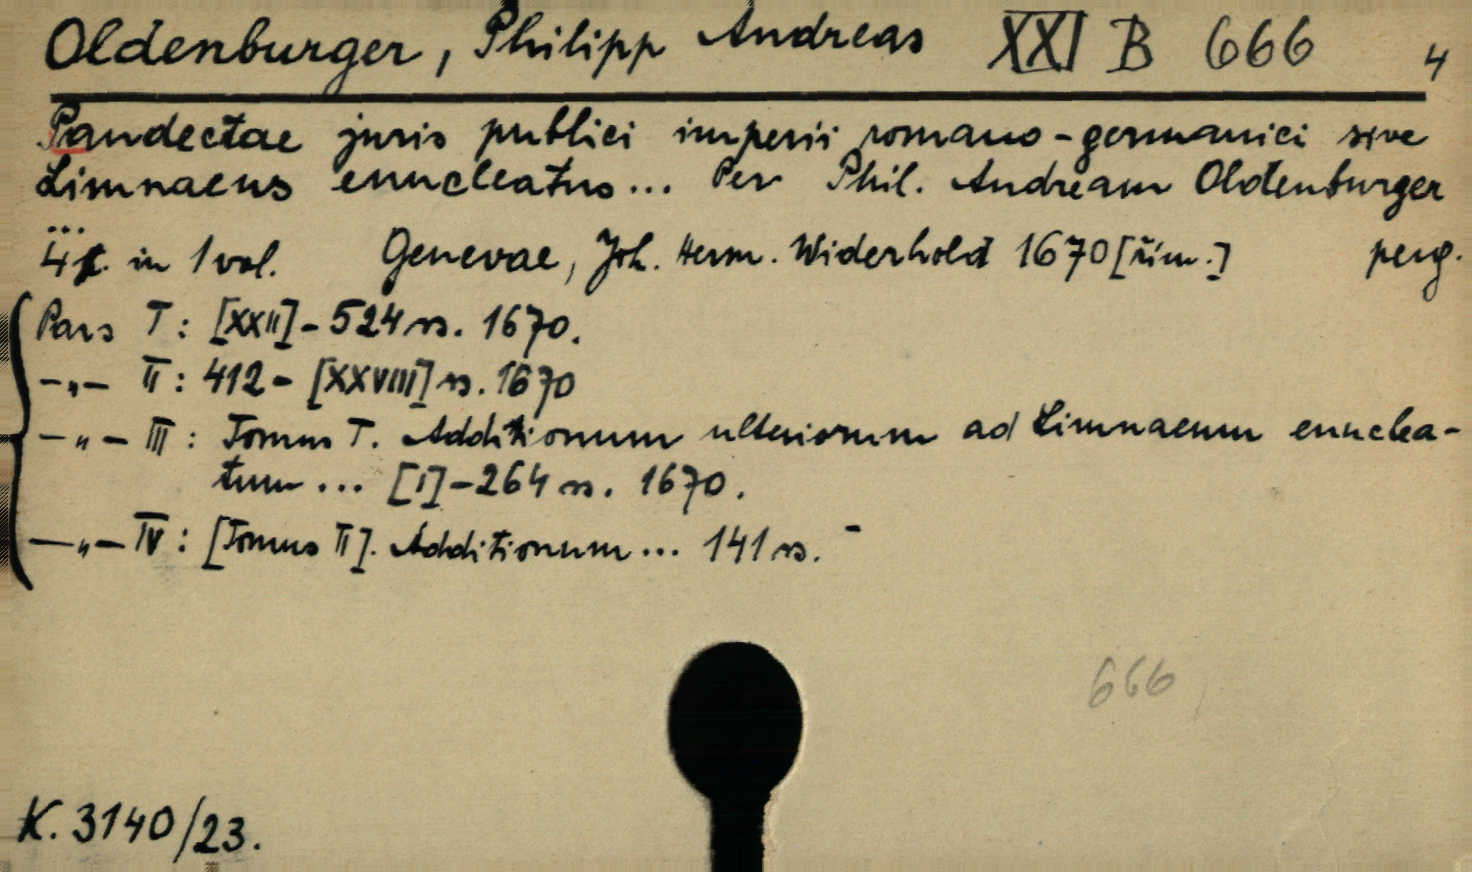 Oldenburger, Philipp Andreas XXI B 666 4
Pandectae juris publici imperii romano-germanici sive
Limnaeus enucleatus... Per Phil. Andream Oldenburger
...
4 t. in 1 vol. Genevae, Joh. Herm. Widerhold 1670 [řím.] perg.
Pars I: [XXII]-524 ss. 1670.
-„- II: 412-[XXVIII] ss. 1670
-„- III: Tomus I. Additionum ulteriorum ad Limnaeum enuclea-
tum... [I]-264 ss. 1670.
-„- IV: [Tomus II]. Additionum... 141 ss. -
666
K. 3140/23.